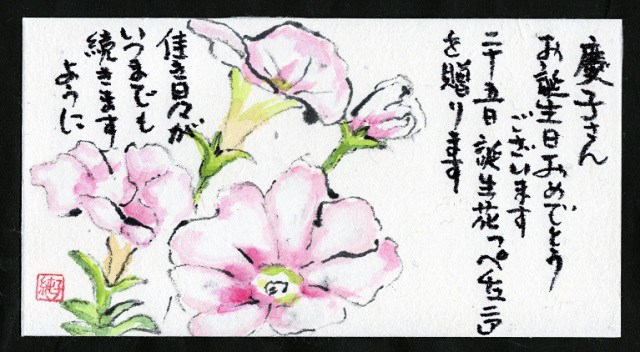 慶子さん
お誕生日おめでとう
ございます
二十五日 誕生花っペチュニア
を贈ります
佳き日々が
いつまでも
続きます
ように